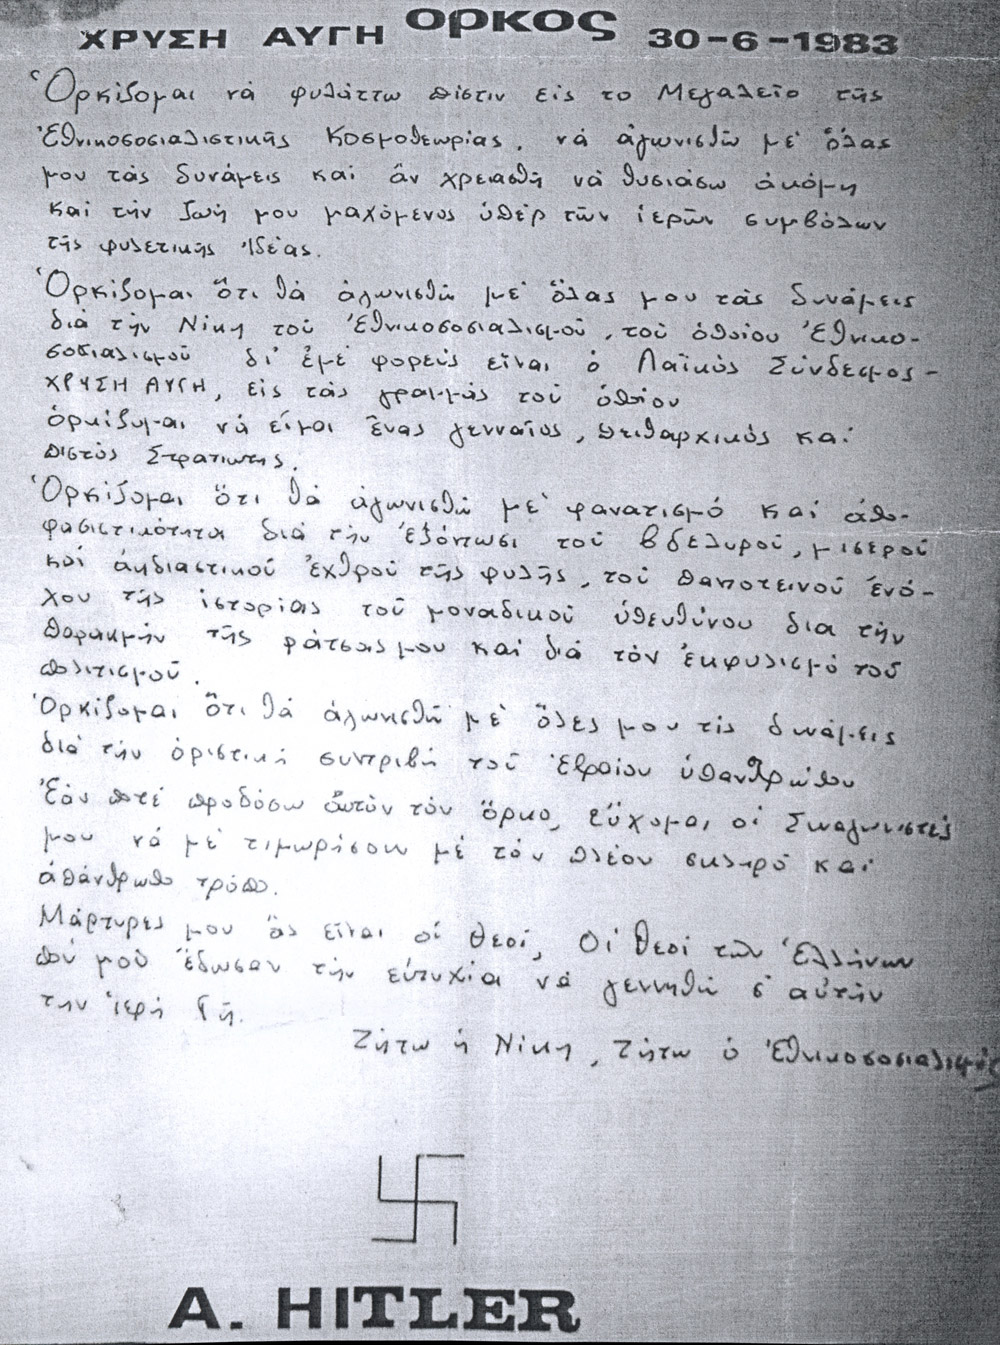 ΧΡΥΣΗ ΑΥΓΗ ΟΡΚΟΣ 30-6-1983
Ὁρκίζομαι νά φυλάττω πίστιν εἰς το Μεγαλεῖο τῆς
Ἐθνικοσοσιαλιστικῆς Κοσμοθεωρίας, νά ἀγωνισθῶ μέ ὅλας
μου τὰς δυνάμεις καί ἄν χρειασθῆ νά θυσιάσω ἀκόμη
και τήν ζωή μου μαχόμενος ὑπέρ τῶν ἱερῶν συμβόλων
τῆς φυλετικῆς Ἰδέας.
Ὁρκίζομαι ὅτι θά ἀγωνισθῶ μέ ὅλας μου τάς δυνάμεις
διά τήν Νίκη τοῦ Ἐθνικοσοσιαλισμοῦ, τοῦ ὁποίου Ἐθνικο-
σοσιαλισμοῦ δι' ἐμέ φορεύς εἶναι ὁ Λαϊκός Σύνδεσμος-
ΧΡΥΣΗ ΑΥΓΗ, εἰς τάς γραμμάς τοῦ ὁποίου
ὁρκίζομαι νά εἶμαι ἕνας γενναῖος, πειθαρχικός καί
πιστός Στρατιώτης.
Ὁρκίζομαι ὅτι θά ἀγωνισθῶ μέ φανατισμό καί ἀπο-
φασιστικότητα διά τήν ἐξόντωσι τοῦ βδελυροῦ, μισεροῦ
καί ἀηδιαστικοῦ ἐχθροῦ τῆς φυλῆς, τοῦ παποτεινοῦ ἐνό-
χου της ἱστορίας τοῦ μοναδικοῦ ὑπευθύνου δια τήν
παρακμήν τῆς ράτσας μου καί διά τόν ἐκφυλισμό τοῦ
πολιτισμοῦ.
Ὁρκίζομαι ὅτι θά ἀγωνισθῶ μέ ὅλες μου τίς δυνάμεις
διά τήν ὁριστική συντριβή τοῦ Ἑβραίου ὑπανθρώπου
Ἐάν ποτέ προδόσω αὐτόν τόν ὅρκο, εὔχομαι οἱ Συναγωνιστές
μου νά μέ τιμωρήσουν μέ τόν πλέον σκληρό καί
ἀπάνθρωπο τρόπο.
Μάρτυρες μου ἄς εἶναι οἱ Θεοί, Οἱ Θεοί τῶν Ἑλλήνων
πού μοῦ ἔδωσαν τήν εὐτυχία νά γεννηθῶ σ' αὐτήν
την ἱερή Γῆ.
Ζήτω ἡ Νίκη, Ζήτω ὁ Ἐθνικοσοσιαλισμός
A. HITLER